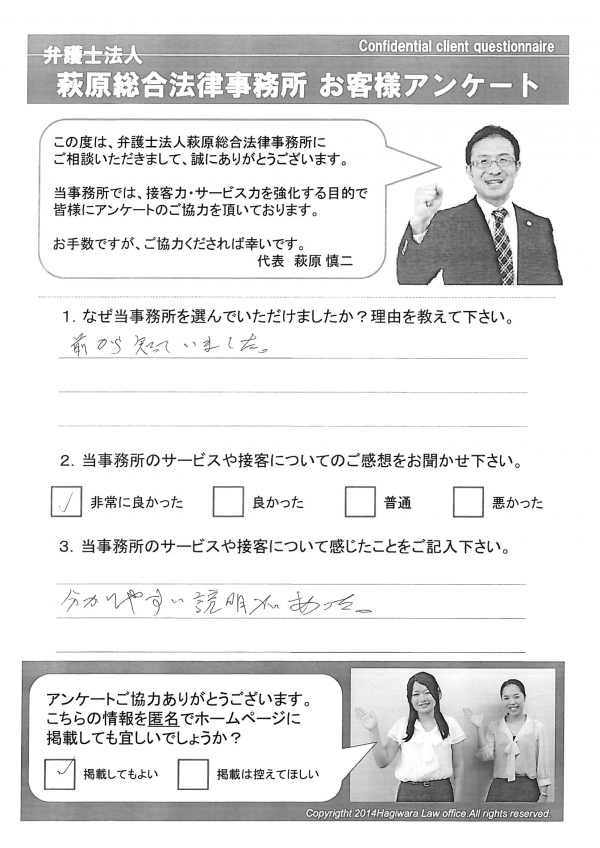 Confidential client questionnaire
弁護士法人
萩原総合法律事務所 お客様アンケート
この度は、弁護士法人萩原総合法律事務所に
ご相談いただきまして、誠にありがとうございます。
当事務所では、接客力・サービス力を強化する目的で
皆様にアンケートのご協力を頂いております。
お手数ですが、ご協力くだされば幸いです。
代表 萩原 慎二
1. なぜ当事務所を選んでいただけましたか？理由を教えて下さい。
前から知っていました。
2. 当事務所のサービスや接客についてのご感想をお聞かせ下さい。
非常に良かった 良かった 普通 悪かった
3. 当事務所のサービスや接客について感じたことをご記入下さい。
分かりやすい説明があった。
アンケートご協力ありがとうございます。
こちらの情報を匿名でホームページに
掲載しても宜しいでしょうか？
掲載してもよい 掲載は控えてほしい
Copyrigtht 2014Hagiwara Law office.All rights reserved.